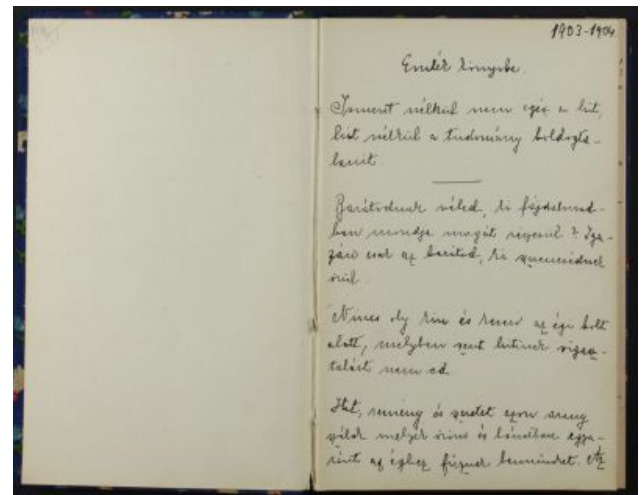 1903-1904
Emlék könyvbe.
Ismeret nélkül nem egész a hit,
hit nélkül a tudomány boldogta-
lanit
Barátodnak véled, ki fájdalmad-
ban mondja magát részesül? Iga-
zán csak az barátod, ki szerencsédnek
örül.
Nincs oly kin és az égi bolt
alatt, melyben szent hitünk vigasz-
talást nem ad.
Hit, remény és szeretet azon arany
melyek öröm és bánatban egya-
ránt az éghez fűznek bennünket. Az